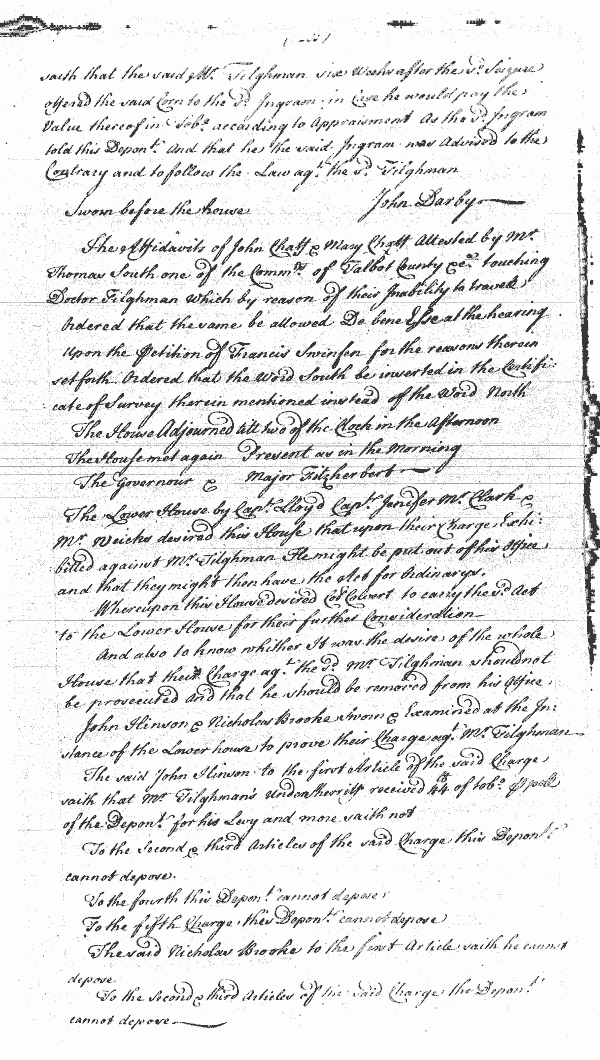 saith that the said Mr. Tilghman six Weeks after the sd. Seizure
offered the said Corn to the sd. Ingram in Case he would pay the
Value thereof in Tobo. according to Appraisment As the sd. Ingram
told this Depont. And that he the said Ingram was Advised to the
Contrary and to follow the Law agt. the sd. Tilghman
Sworn before the house John Darby
The Affidavits of John Chaff & Mary Chaff Attested by Mr.
Thomas South one of the Commrs. of Talbot County &ca. touching
Doctor Tilghman which by reason of their Inability to travell
Ordered that the same be allowed De bene Esse at the hearing
Upon the Petition of Francis Swinfen for the reasons therein
set forth Ordered that the Word South be inserted in the Certifi:
cate of Survey therein mentioned instead of the Word North
The House Adjourned till two of the Clock in the Afternoon
The House met again Present as in the Morning
The Governour & Major Fitzherbert
The Lower House by Capt. Lloyd Capt. Jenifer Mr. Clark &
Mr. Weicks desired this House that upon their Charge Exhi:
bitted against Mr. Tilghman He might be put out of his Office
and that they might then have the Act for Ordinarys.
Whereupon this House desired Col Calvert to carry the sd. Act
to the Lower House for their further Consideration
And also to know whither It was the desire of the whole
House that their Charge agt. the sd. Mr. Tilghman should not
be prosecuted And that he should be removed from his Office
John Hinson & Nicholas Brooke Sworn & Examined at the In:
stance of the Lower house to prove their Charge agt. Mr. Tilghman
The said John Hinson to the first Article of the said Charge
saith that Mr. Tilghman's Undersherriff received 44 lb of tobo. p poll
of the Depont. for his Levy and more saith not
To the Second & third Articles of the said Charge this Depont.
cannot depose.
To the fourth this Depont. cannot depose
To the fifth Charge this Depont. cannot depose
The said Nicholas Brooke to the first Article saith he cannot
depose
To the Second & third Articles of the said Charge the Depont.
cannot depose